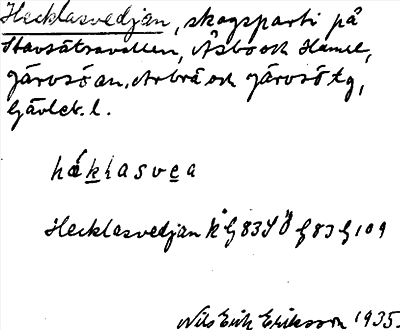 Hecklasvedjan, skogsparti på
Stavsätravallen, Åsbo och Hamre,
Järvsö an. Arbrå och Järvsö tg,
Gävleb. l.
häklasvea
Hecklasvedjan K G 83 S Ö G 83 G 109
Nils Erik Eriksson 1935.